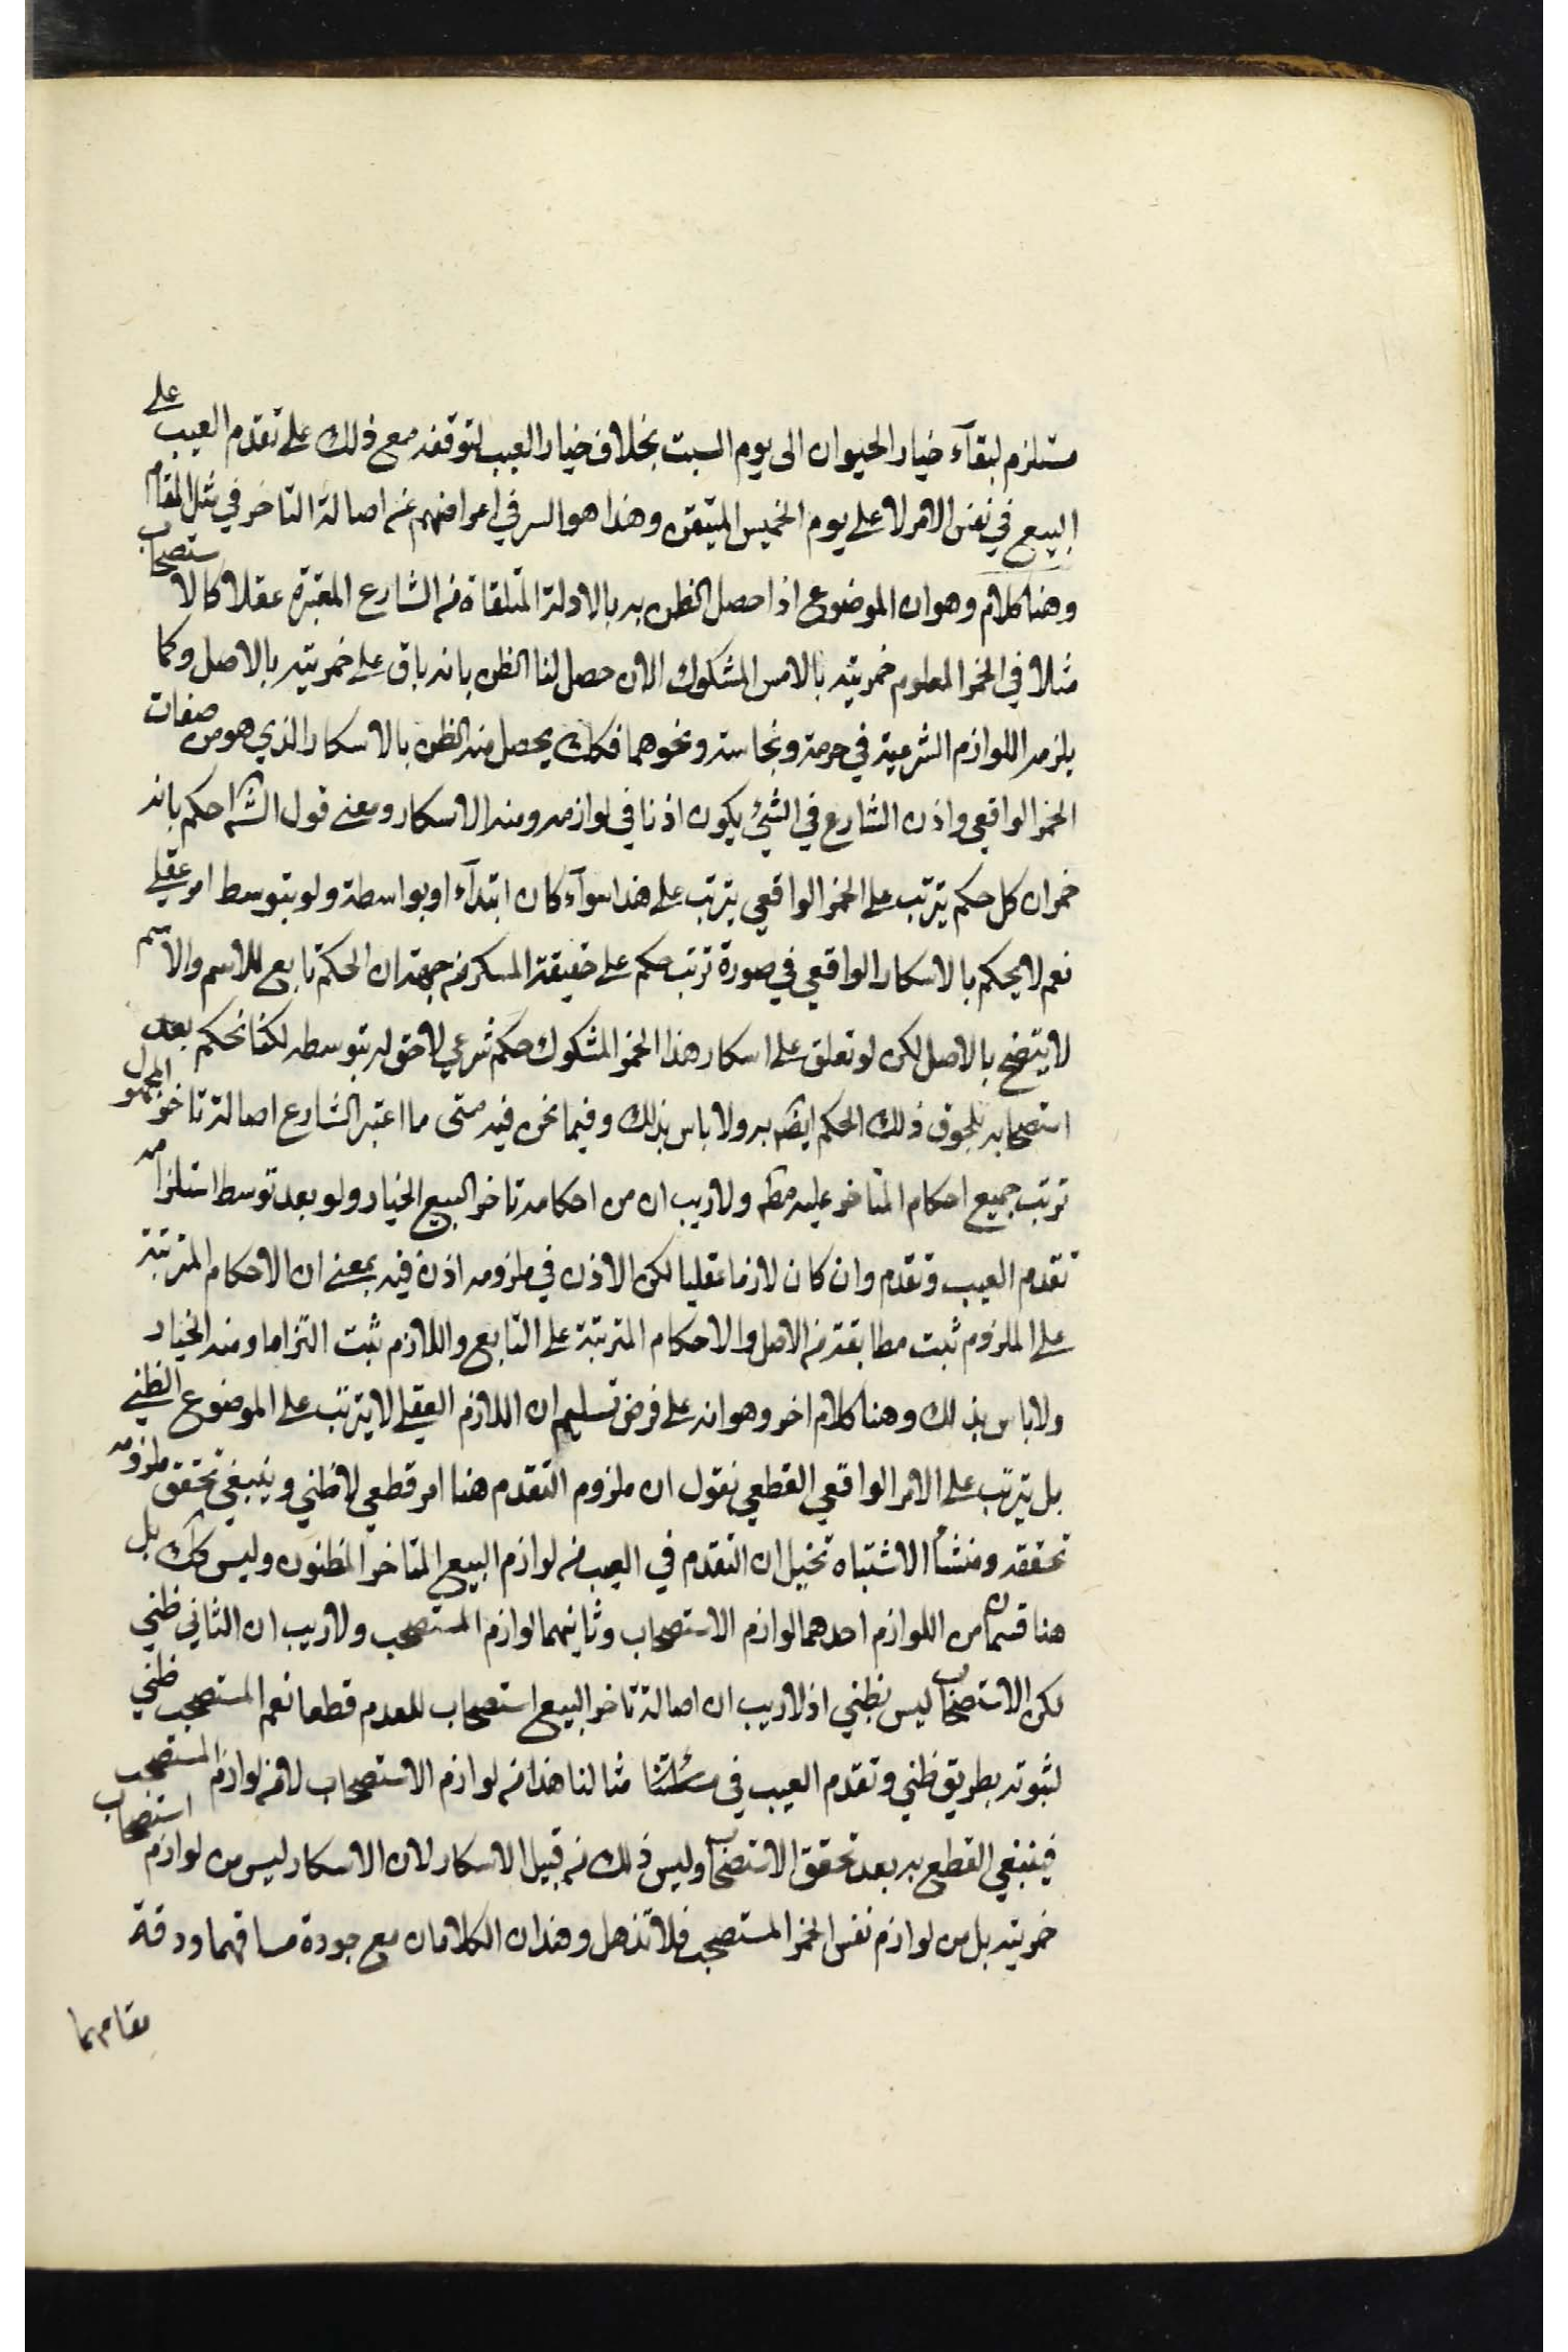 مستلزم لبقآء خيار الحيوان الى يوم السبت بخلاف خيار العيب لتوقفه مع ذلك على تقدم العيب على
البيع في نفس الامر لا على يوم الخميس المتيقن وهذا هو السر في اعراضهم عن اصالة التاخر في مثل المقام
وهنا كلام وهو ان الموضوع اذا حصل الظن به بالادلة المتلقاة من الشارع المعتبرة عقلا كالاستصحاب
مثلا في الخمر المعلوم خمريته بالامس المشكوك الان حصل لنا الظن بانه باق على خمريته بالاصل وكما
يلزمه اللوازم الشرعية في حرمته ونجاسته ونحوهما فكك يحصل منه الظن بالاسكار الذي هو من صفات
الخمر الواقعي واذن الشارع في الشئ يكون اذنا في لوازمه ومنه الاسكار ومعنى قول الشه احكم بانه
خمر ان كل حكم يترتب على الخمر الواقعي يترتب على هذا سوآء كان ابتدآء او بواسطة ولو بتوسط امر عقلي
نعم لا يحكم بالاسكار الواقعي في صورة ترتب حكم على حقيقة المسكر من جهة ان الحكم تابع للاسم والاسم
لا يتضح بالاصل لكن لو تعلق على اسكار هذا الخمر المشكوك حكم شرعي لاحق له بتوسطه لكنا نحكم بعد
استصحابه بلحوق ذلك الحكم ايضه به ولا باس بذلك وفيما نحن فيه متى ما اعتبر الشارع اصالة تاخر المجهول
ترتب جميع احكام المتاخر عليه مطه ولا ريب ان من احكامه تاخر البيع الخيار ولو بعد توسط استلزامه
تقدم العيب وتقدم وان كان لازما عقليا لكن الاذن في ملزومه اذن فيه بمعنى ان الاحكام المترتبة
على الملزوم ثبت مطابقة من الاصل والاحكام المترتبة على التابع واللازم ثبت التزاما ومنه الخيار
ولا باس بذلك وهنا كلام اخر وهو انه على فرض تسليم ان اللازم العقلي لا يترتب على الموضوع الظني
بل يترتب على الامر الواقعي القطعي نقول ان ملزوم التقدم هنا امر قطعي لا ظني وينبغي تحقق ملزومه
تحققه ومنشأ الاشتباه تخيل ان التقدم في العيب من لوازم البيع المتاخر المظنون وليس كك بل
هنا قسمان من اللوازم احدهما لوازم الاستصحاب وثانيهما لوازم المستصحب ولا ريب ان الثاني ظني
لكن الاستصحاب ليس بظني اذ لا ريب ان اصالة تاخر البيع استصحاب للعدم قطعا نعم المستصحب ظني
لثبوته بطريق ظني وتقدم العيب في مسئلتنا مثالنا هذا من لوازم الاستصحاب لا من لوازم المستصحب
فينبغي القطع به بعد تحقق الاستصحاب وليس ذلك من قبيل الاسكار لان الاسكار ليس من لوازم استصحاب
خمريته بل من لوازم نفس الخمر المستصحب فلا تذهل وهذان الكلامان مع جودة مساقهما ودقة